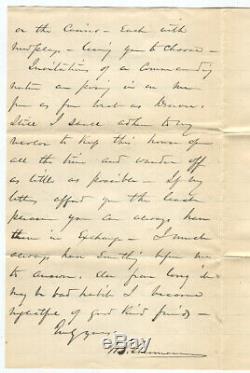 or the Casino - Each with
mes plays - leaving you to choose -
Invitations of a Commanding
nature are pouring in on me
from as far West as Denver.
Still I shall adhere to my
resolve to Keep this house open
all the time and wander off
as little as possible - If my
letters afford you the least
pleasure you can always have
them in Exchange - I must
always have Somethg before me
to answer. else from long idle
may be bad habits I become
neglectful of good Kind friends -
Truly yours
W.T. Sherman